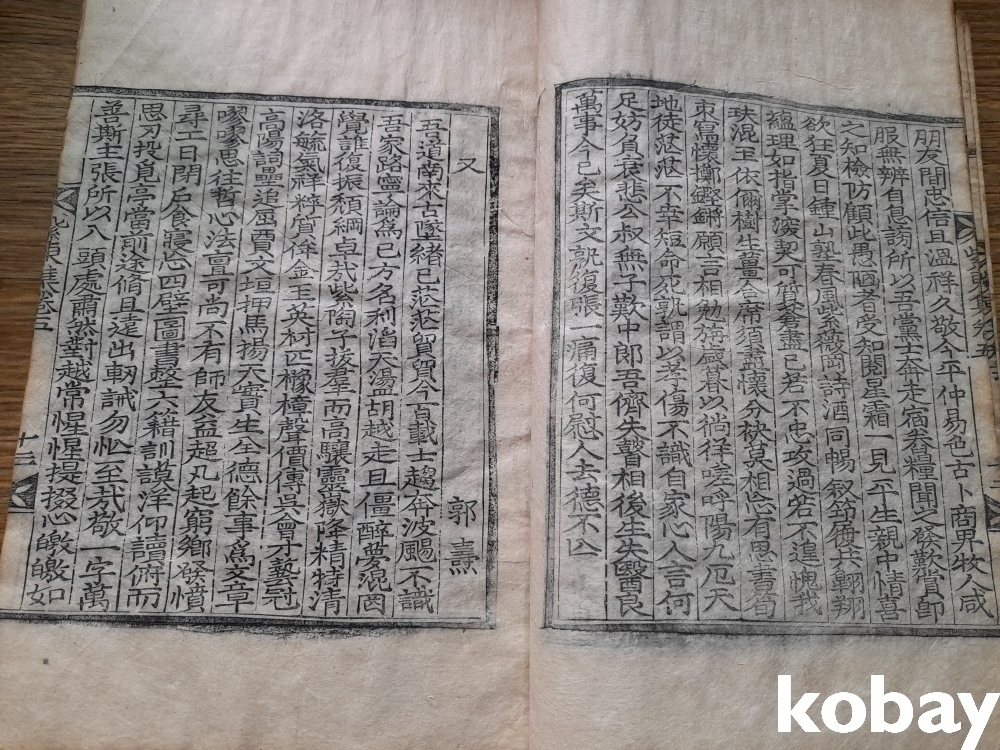 朋友間忠信且溫祥久敬今平仲易色古卜商男牧人咸
服無辨自息謗所以吾黨士奔走宿舂糧聞之發歎賞卽
之知檢防顧此愚陋者受知閱星霜一見平生親中情喜
欲狂夏日鍾山塾春風紫薇岡詩酒同暢叙節履共翱翔
蘊理如指掌深契可質蒼盡已若不忠攻過若不遑愧我
珷混玉依爾樹生薑合席須盡懷分袂莫相忘有思書荀
束烏懷擲鏗鏘願言相勉旃感暮以徜徉嗟呼陽九厄天
地徒茫茫不幸短命死孰謂以孝傷不識自家心人言何
足妨負哀悲今叔無子歎中郎吾儕失聲相後生失醫良
萬事今已矣斯文孰復張一痛復何慰人去德不亾
又
郭 燾
吾道南來古墜緖已茫茫貿貿今百載士趨奔波颺不識
吾家路寧論爲已方名利滔天盪胡越走且僵醉夢混罔
覺誰復振頹綱卓哉紫陶子拔羣而高驤靈嶽降精特淸
洛毓氣祥粹質侔金玉英材匹櫲樟聲價傳吳會才藝冠
高陽詞壘追屈賈文垣押馬揚天實生全德餘事爲文章
嘐嘐思往哲心法亶可尚不有師友益超凡起窮鄕發憤
尋工日閉戶食寢忘四壁圖書整六籍訓謨洋仰讀俯而
思刃投見亭當前途脩且遠出軔誠勿忙至哉敬一字萬
善斯主張所以入頭處肅然對越常惺惺提掇心皦皦如
卷之五
十二